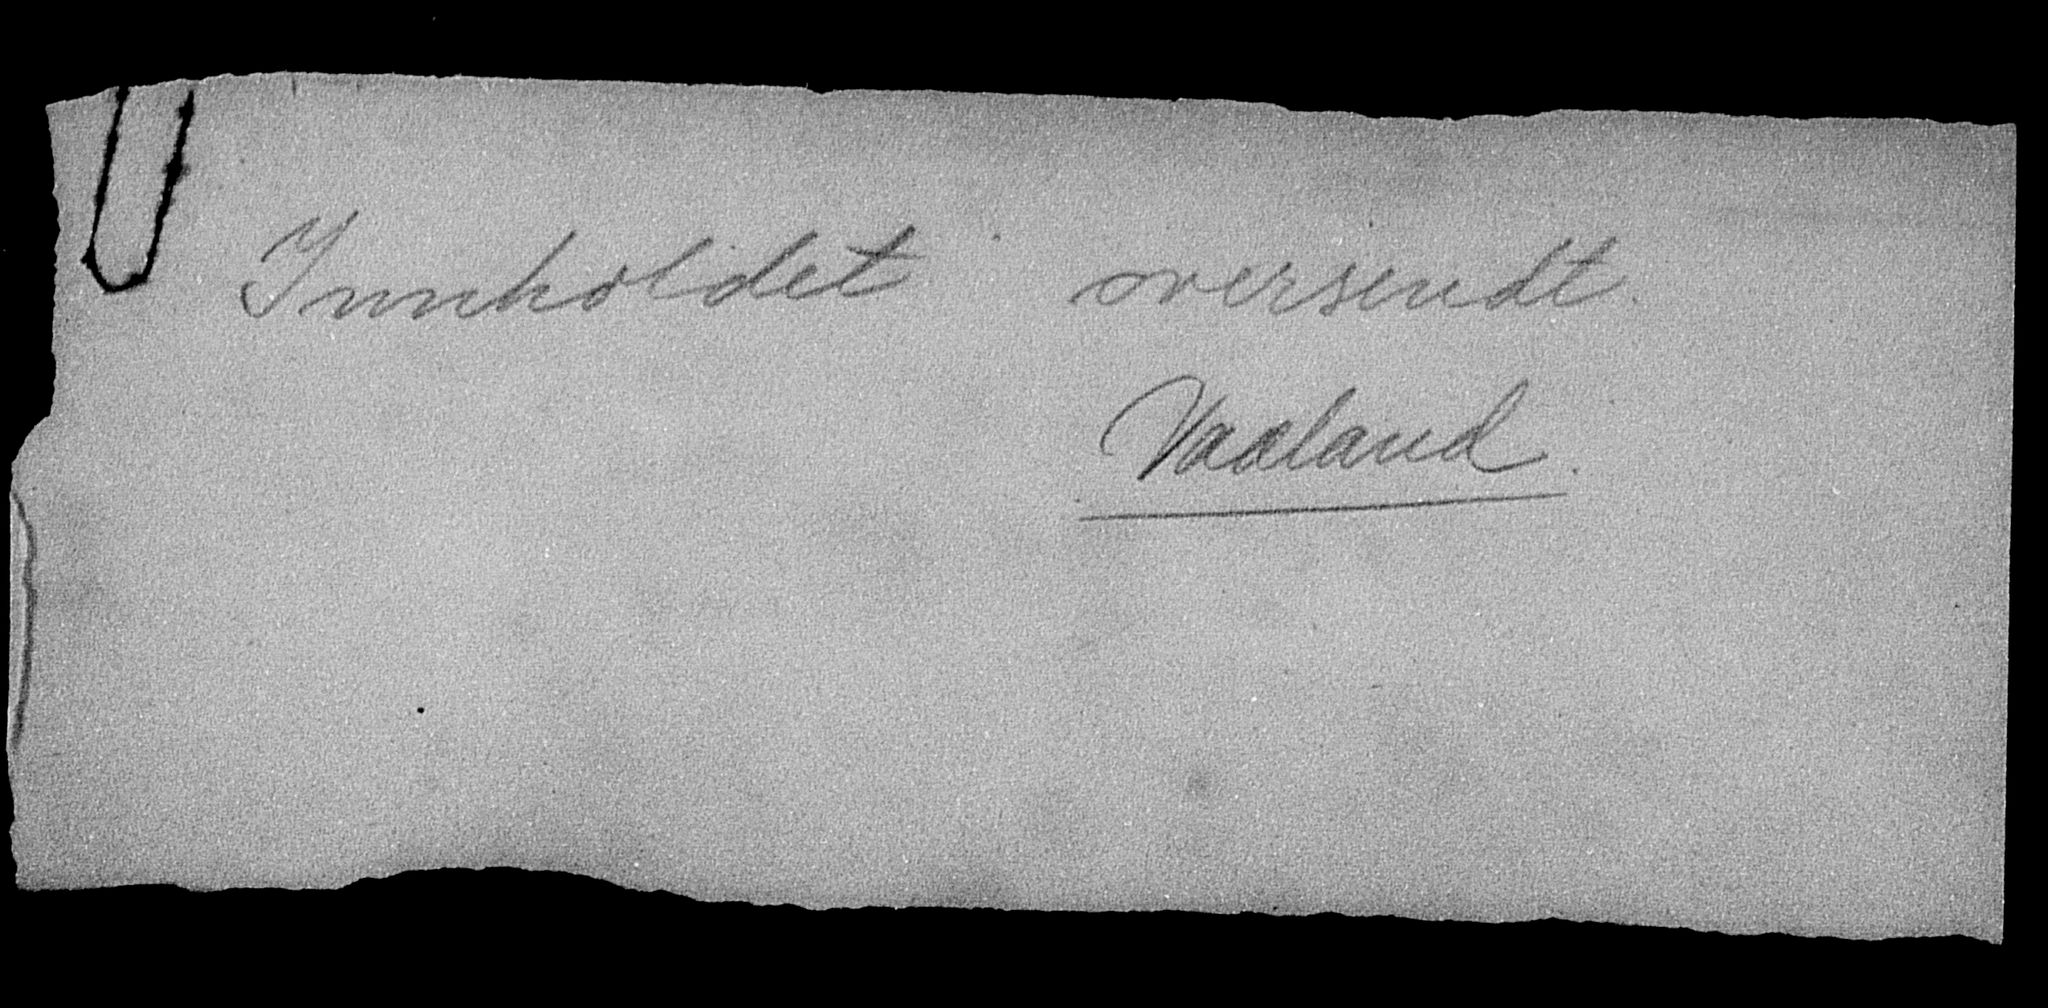 Innholdet oversendt.
Vaaland.